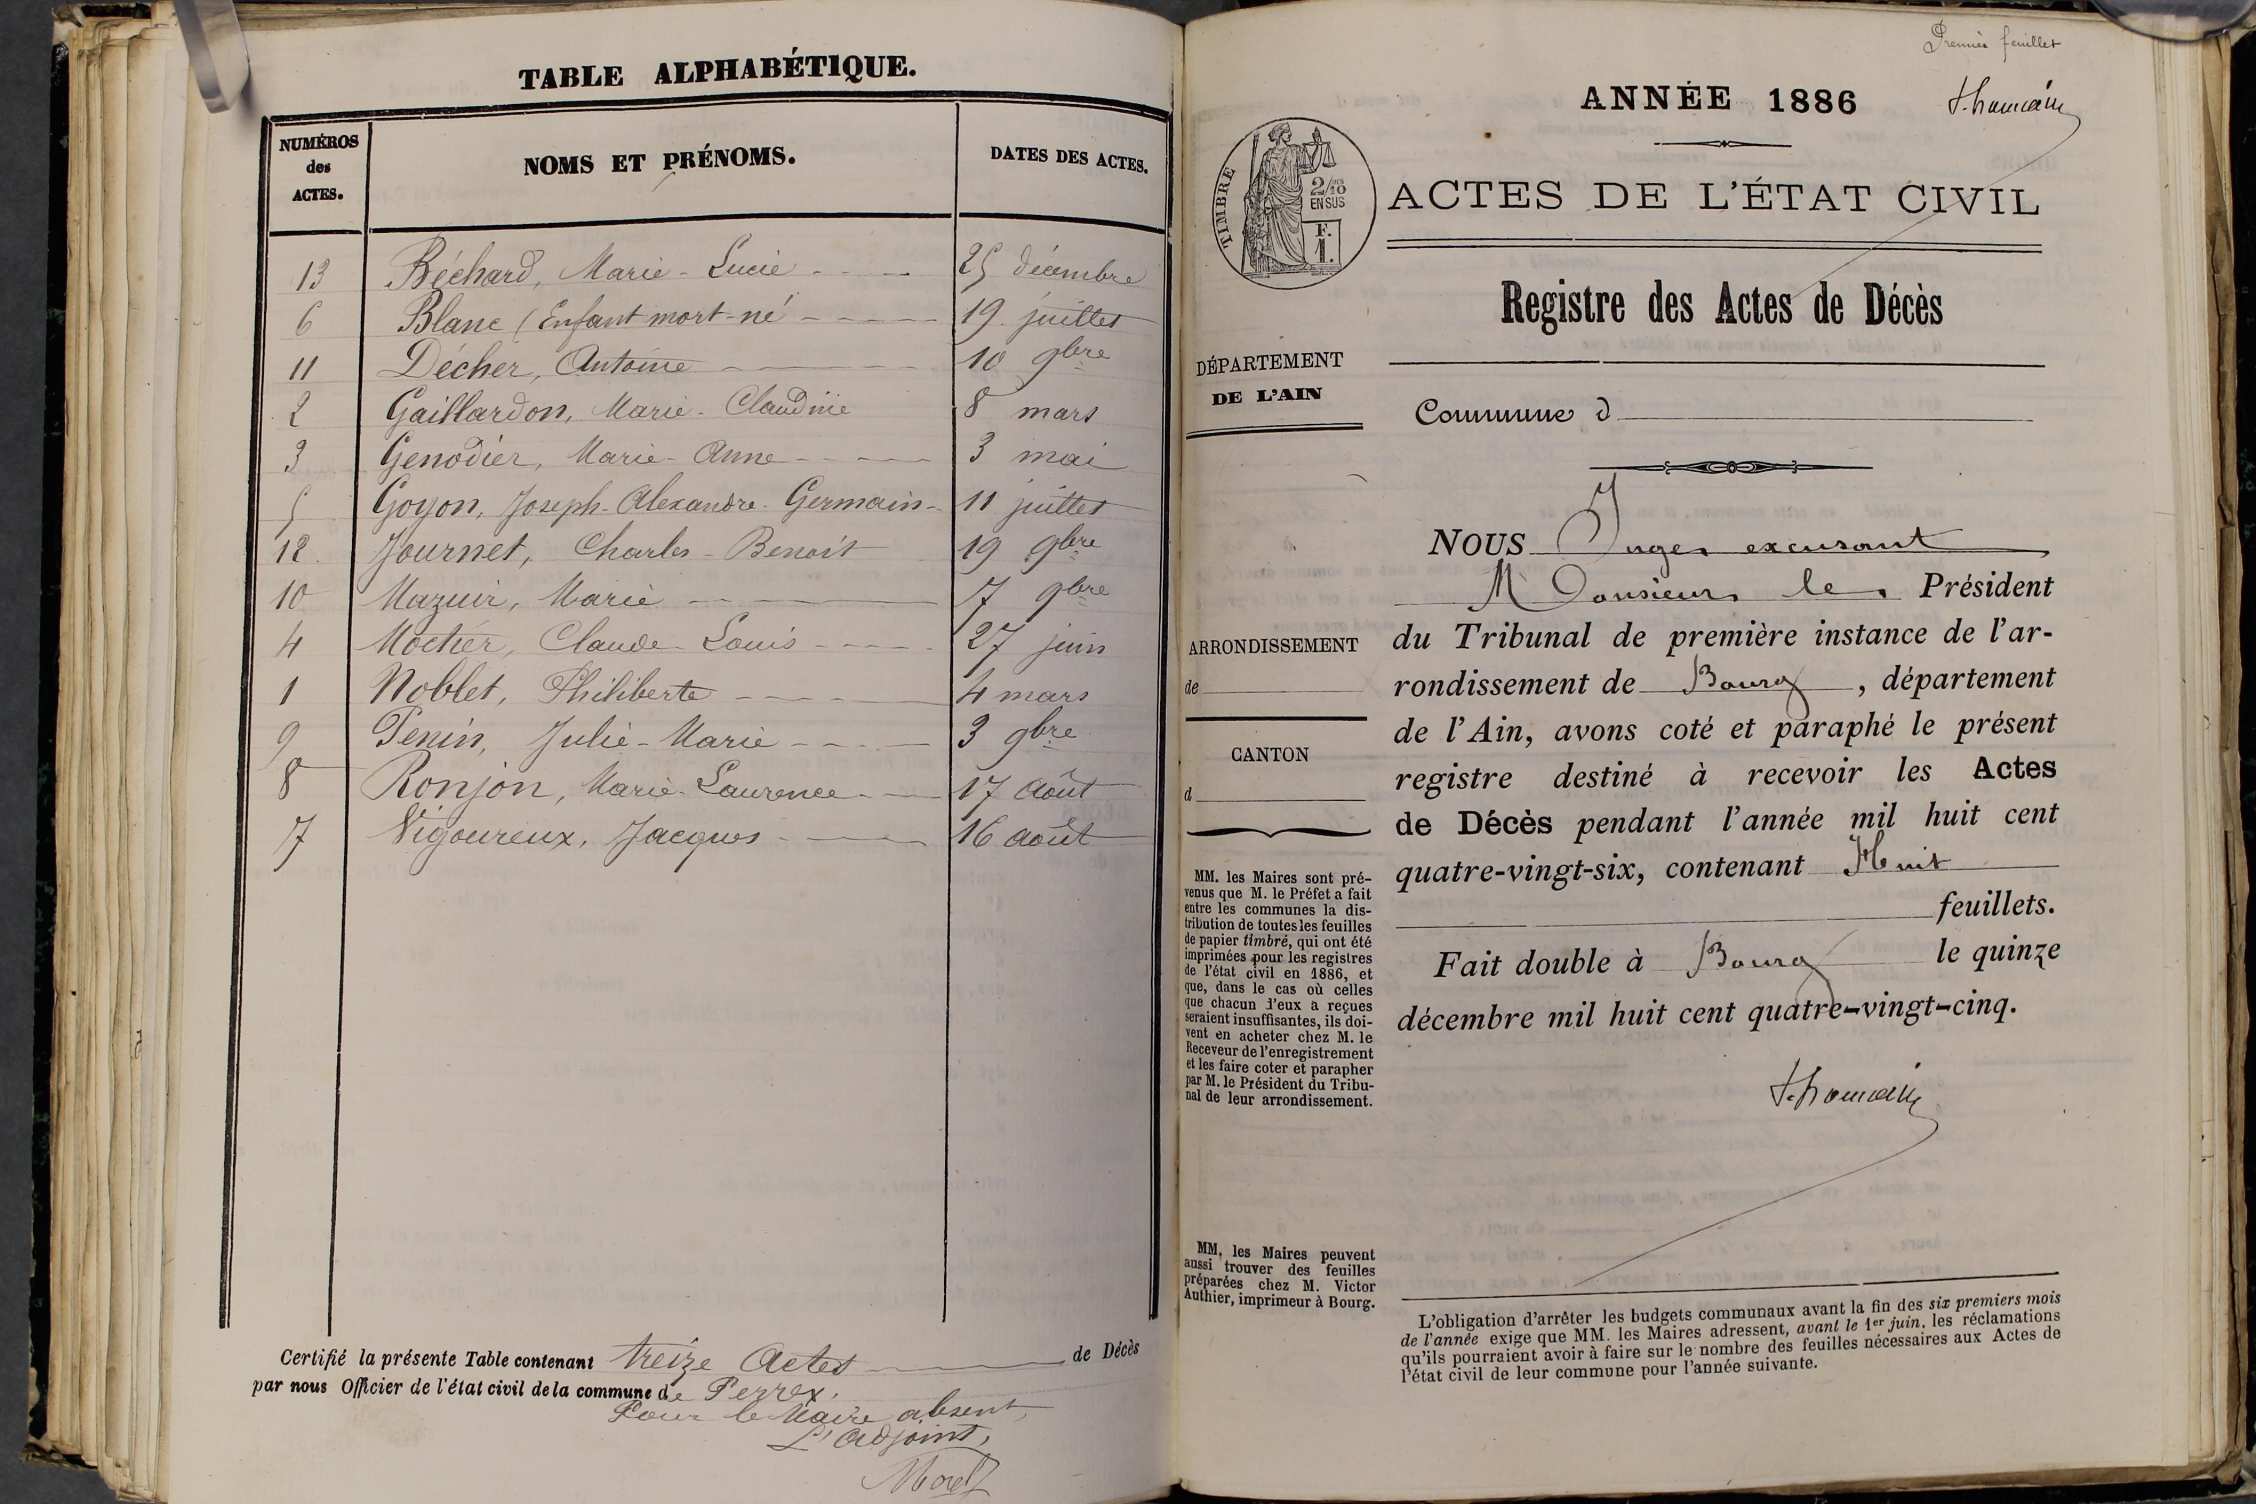 TABLE ALPHABÉTIQUE.
NUMÉROS des ACTES.
NOMS ET PRÉNOMS.
DATES DES ACTES.
13 Béchard, Marie-Lucie 25 décembre
6 Blanc (Enfant mort-né 19 juillet
11 Décher, Antoine 10 9bre
2 Gaillardon, Marie-Claudine 8 mars
3 Genodier, Marie-Anne 3 mai
5 Goyon, Joseph-Alexandre-Germain 11 juillet
12 Journet, Charles-Benoit 19 9bre
10 Mazuir, Marie 7 9bre
4 Motier, Claude-Louis 27 juin
1 Noblet, Philiberte 4 mars
9 Penin, Julie-Marie 3 9bre
8 Ronjon, Marie-Laurence 17 août
7 Vigoureux, Jacques 16 août
Certifié la présente Table contenant treize Actes de Décès
par nous Officier de l'état civil de la commune de Perrex.
Pour le Maire absent,
L'adjoint,
Morel
Premier feuillet
ANNÉE 1886
TIMBRE
2/10 EN SUS
F. 1.
ACTES DE L'ÉTAT CIVIL
Registre des Actes de Décès
DÉPARTEMENT
DE L'AIN
Commune d
NOUS Juge excusant
Monsieur le Président
du Tribunal de première instance de l'ar-
rondissement de Bourg, département
de l'Ain, avons coté et paraphé le présent
registre destiné à recevoir les Actes
de Décès pendant l'année mil huit cent
quatre-vingt-six, contenant Huit
feuillets.
Fait double à Bourg le quinze
décembre mil huit cent quatre-vingt-cinq.
ARRONDISSEMENT
de
CANTON
d
MM. les Maires sont pré-
venus que M. le Préfet a fait
entre les communes la dis-
tribution de toutes les feuilles
de papier timbré, qui ont été
imprimées pour les registres
de l'état civil en 1886, et
que, dans le cas où celles
que chacun d'eux a reçues
seraient insuffisantes, ils doi-
vent en acheter chez M. le
Receveur de l'enregistrement
et les faire coter et parapher
par M. le Président du Tribu-
nal de leur arrondissement.
MM. les Maires peuvent
aussi trouver des feuilles
préparées chez M. Victor
Authier, imprimeur à Bourg.
L'obligation d'arrêter les budgets communaux avant la fin des six premiers mois
de l'année exige que MM. les Maires adressent, avant le 1er juin, les réclamations
qu'ils pourraient avoir à faire sur le nombre des feuilles nécessaires aux Actes de
l'état civil de leur commune pour l'année suivante.